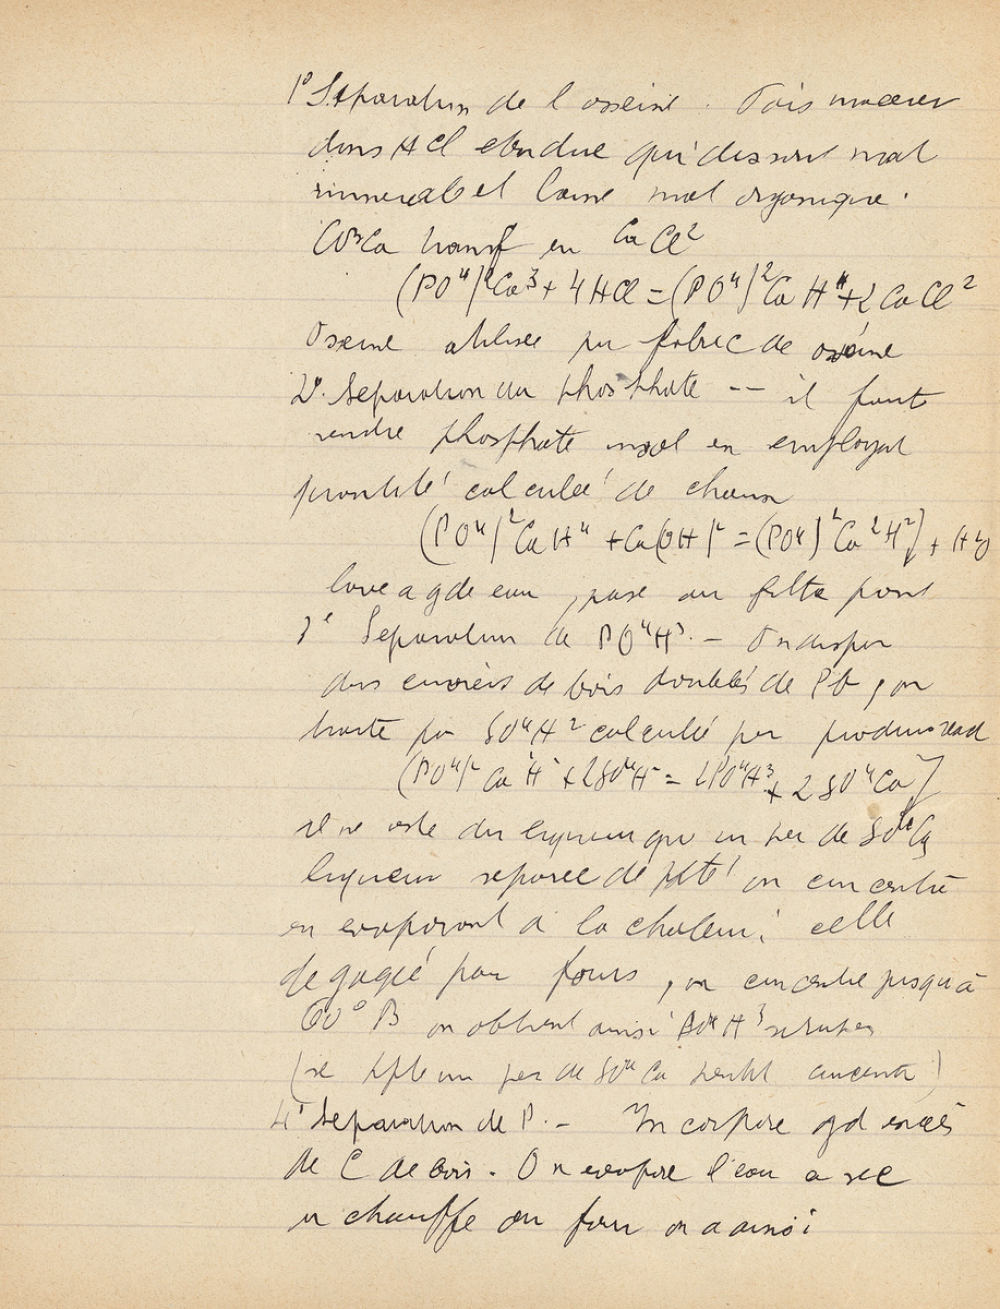 1° Séparation de l'osseine. Fais macerer
dans HCl etendue qui dissout mat
minerale et laisse mat organique.
CO³Ca transf en CaCl²
(PO⁴)²Ca³ + 4HCl = (PO⁴)²CaH⁴ + 2CaCl²
Oseine utilisee pr fabric de
2°. Séparation du phosphate -- il faut
rendre phosphate insol en employat
quantité calculée de chaux
(PO⁴)²CaH⁴ + Ca(OH)² = (PO⁴)²Ca²H²] + H²O
lave a gde eau, passe au filtre
3° Separation de PO⁴H³. -
dans de bois doublés de Pb, on
traite par SO⁴H² calculée per
(PO⁴)²Ca²H² + 2SO⁴H² = 2PO⁴H³ + 2SO⁴Ca]
il ne reste du liqueur que un peu de SO⁴Ca
liqueur séparée de on concentre
en evaporant a la chaleur: celle
degagée par fours, on concentre jusqu'à
60° B on obtient ainsi PO⁴H³
(se un peu de SO⁴Ca)
4° Séparation de P. - Incorpore gd excès
de C de bois. On evapore l'eau a sec
on chauffe au four on a ainsi